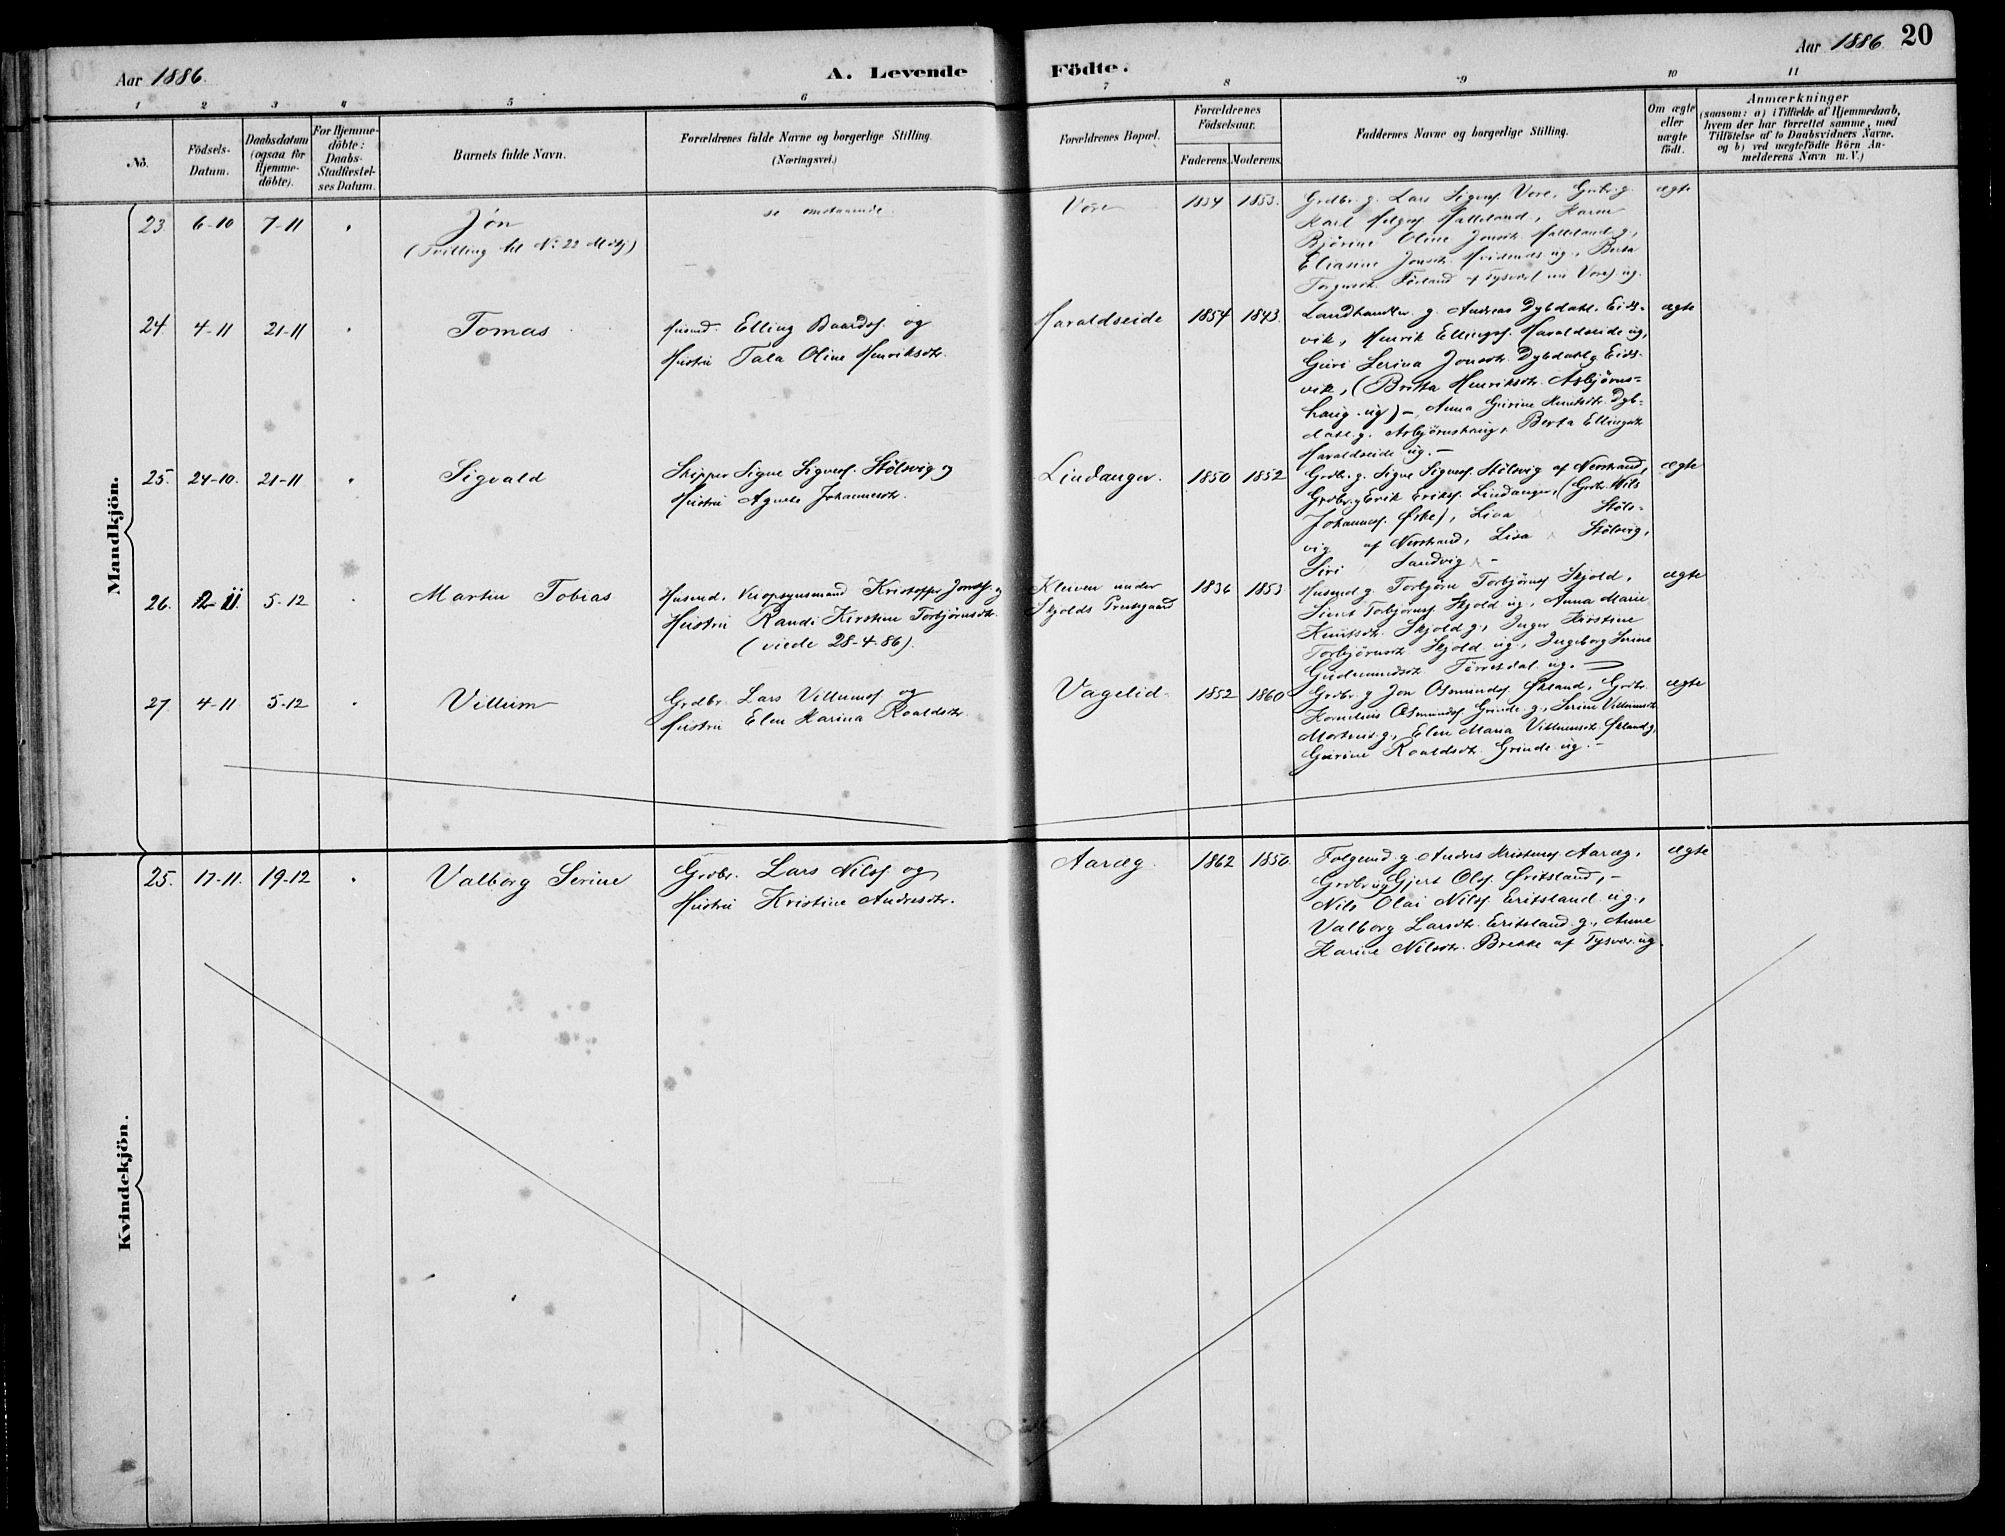 Aar 1886.
A. Levende
Födte.
Aar 1886
20
1 2 3 4 5 6 7 8 9 10 11
No.
Födsels-
Datum.
Daabsdatum
(ogsaa for
Hjemme-
döbte).
For Hjemme-
döbte:
Daabs-
Stadfæstel-
ses Datum.
Barnets fulde Navn.
Forældrenes fulde Navne og borgerlige Stilling.
(Næringsvei.)
Forældrenes Bopæl.
Forældrenes
Födselsaar.
Faderens. Moderens.
Faddernes Navne og borgerlige Stilling.
Om ægte
eller
uægte
født.
Anmærkninger
(saasom: a) i Tilfælde af Hjemmedaab,
hvem der har forrettet samme, med
Tilföielse af to Daabsvidners Navne,
og b) ved uægtefödte Börn An-
melderens Navn m. V.)
Mandkjön.
23. 6-10 7-11
Jón
(Tvilling til No. 22 Mdkj)
se omstaaende.
Vore
1854 1853.
Grdbr. g. Lars Sigvosf. Vore, Grdbr. g
Karl Helgesf. Halleland, Karen
Bjørine Oline Jonsdtr. Halleland g.,
Eliasine Jonsdtr. Hvidenes ug., Berta
Torgersdtr. Førland af Tysvær (nu Vore) ug.
ægte
24. 4-11 21-11
Tomas
Husmd. Elling Baardsf. og
Hustru Tala Oline Henriksdtr.
Haraldseide
1854 1843.
Landhandler g. Andreas Dybdahl, Eids-
vik, Henrik Ellingsf. Haraldseide ug,
Guri Serina Jonsdtr. Dybdahl g. Eids-
vik, (Britta Henriksdtr. Asbjørns-
haug ug) -, Anna Gurine Knutsdtr. Dyb-
dahl g. Asbjørnshaug, Berta Ellingsdtr.
Haraldseide ug. -
ægte
25. 24-10. 21-11
Sigvald
Skipper Signe Signesf. Stølsvig og
Hustru Agnete Johannesdtr.
Lindanger.
1850 1852
Grdbr. g. Signe Signesf. Stølsvig af Nerstrand,
Grdbr. g Erik Eriksf. Lindanger, (Grdbr. Nils
Johannesf. Ørke), Lisa Støls-
vig af Nerstrand, Lisa Stølsvig,
Siri Sandvig -
ægte
26. 12-11. 5-12
Martin Tobias
Husmd., Veiopsynsmand Kristoffer Jonsf. og
Hustru Randi Kirstine Torbjørnsdtr.
(viede 28-4-86).
Kleiven under
Skjolds Prestegaard
1836 1853
Husmd g. Torbjørn Torbjørnsf Skjold,
Sivert Torbjørnsf Skjold ug, Anna Marie
Knutsdtr. Skjold g., Inger Kirstine
Torbjørnsdtr Skjold ug., Ingeborg Serine
Gudmundsdtr. Tørresdal ug. -
ægte
27 4-11 5-12
Villum
Grdbr. Lars Villumsf og
Hustru Elen Karina Roaldsdtr.
Vagelid.
1852 1860
Grdbr. g Jon Osmundsf. Økland, Grdbr.
Kornelius Osmundsf. Grinde g., Serine Villumsdtr.
g, Elen Maria Villumsdtr. Økland g,
Gurine Roaldsdtr. Grinde ug. -
ægte
Kvindekjön.
25. 17-11. 19-12
Valborg Serine
Grdbr. Lars Nilsf og
Hustru Kristine Andersdtr.
Aaræg.
1862 1850.
Folgemd. g. Anders Kristensf Aaræg,
Grdbr ug Gjert Olsf. Eritsland, -
Nils Olai Nilsf Eritsland ug.,
Valborg Larsdtr. Eritsland g., Anne
Karine Nilsdtr. Brekke af Tysvær ug
ægte